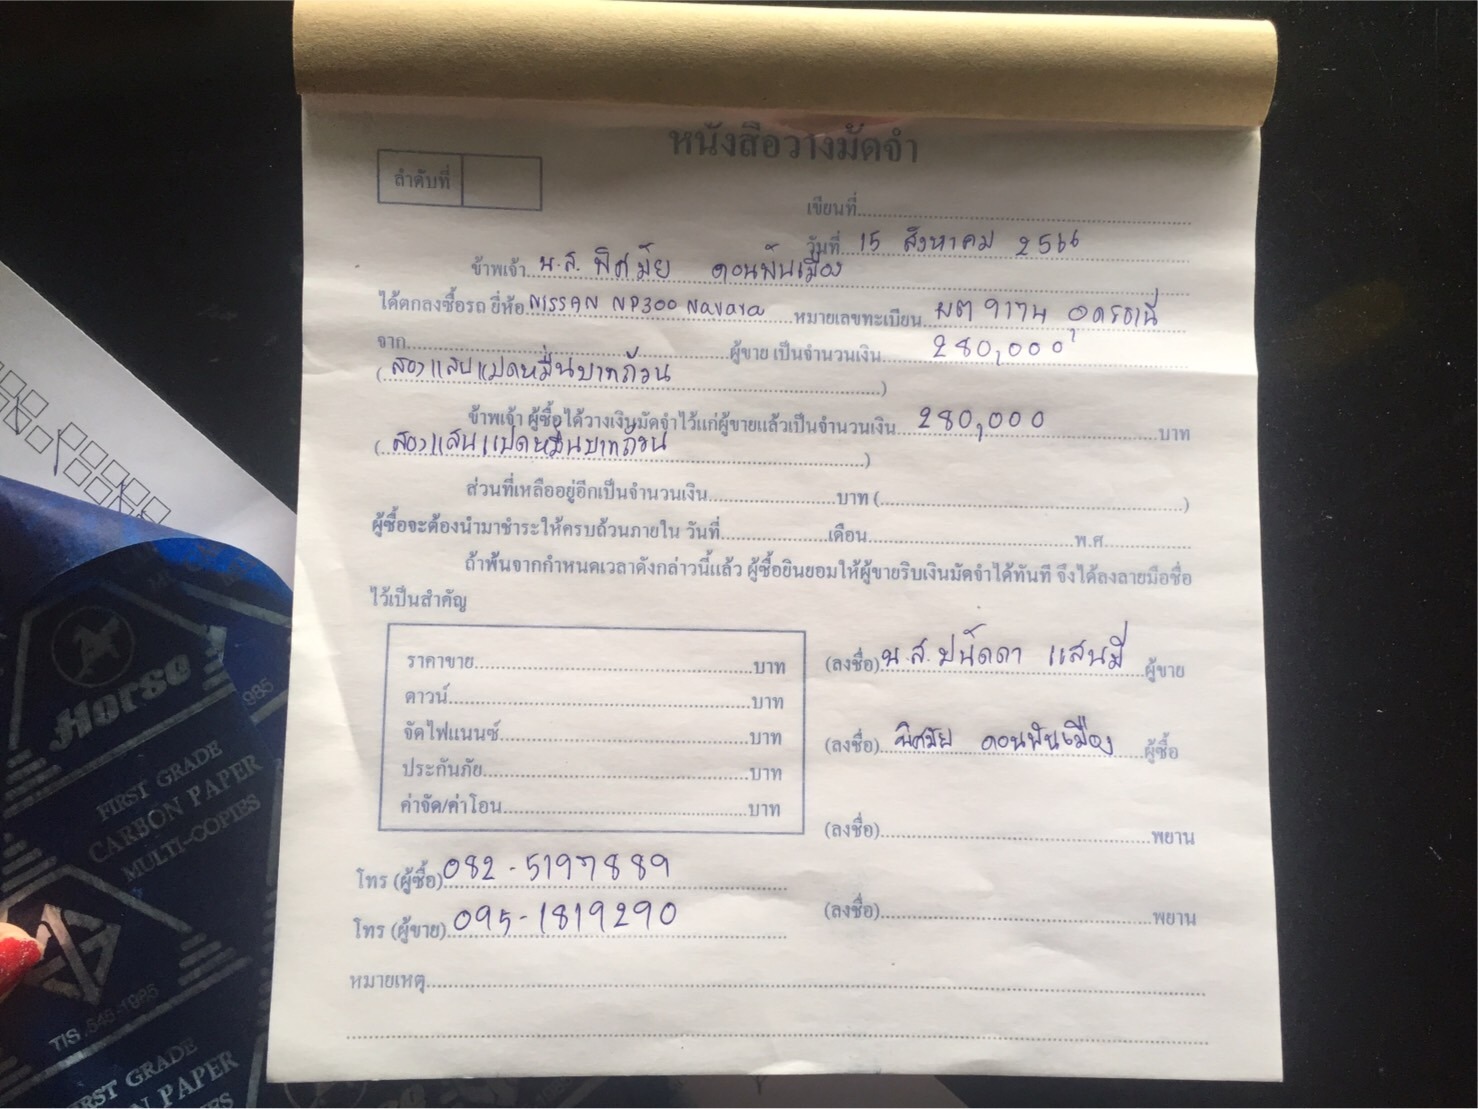 หนังสือวางมัดจำ
ลำดับที่
เขียนที่
วันที่ 15 สิงหาคม 2566
ข้าพเจ้า น.ส. พิศมัย ดอนพันเมือง
ได้ตกลงซื้อรถ ยี่ห้อ NISSAN NP300 Navara หมายเลขทะเบียน อุดรธานี
จาก ผู้ขาย เป็นจำนวนเงิน 280,000
(สองแสนแปดหมื่นบาทถ้วน)
ข้าพเจ้า ผู้ซื้อได้วางเงินมัดจำไว้แก่ผู้ขายแล้วเป็นจำนวนเงิน 280,000 บาท
(สองแสนแปดหมื่นบาทถ้วน)
ส่วนที่เหลืออยู่อีกเป็นจำนวนเงิน บาท ( )
ผู้ซื้อจะต้องนำมาชำระให้ครบถ้วนภายใน วันที่ เดือน พ.ศ.
ถ้าพ้นจากกำหนดเวลาดังกล่าวนี้แล้ว ผู้ซื้อยินยอมให้ผู้ขายริบเงินมัดจำได้ทันที จึงได้ลงลายมือชื่อ
ไว้เป็นสำคัญ
ราคาขาย บาท
ดาวน์ บาท
จัดไฟแนนซ์ บาท
ประกันภัย บาท
ค่าจัด/ค่าโอน บาท
(ลงชื่อ) น.ส. ปนัดดา แสนมี ผู้ขาย
(ลงชื่อ) พิศมัย ดอนพันเมือง ผู้ซื้อ
(ลงชื่อ) พยาน
(ลงชื่อ) พยาน
โทร (ผู้ซื้อ) 082-5197889
โทร (ผู้ขาย) 095-1819290
หมายเหตุ
Horse
985
FIRST GRADE
CARBON PAPER
MULTI-COPIES
TIS.
FIRST GRADE
PAPER